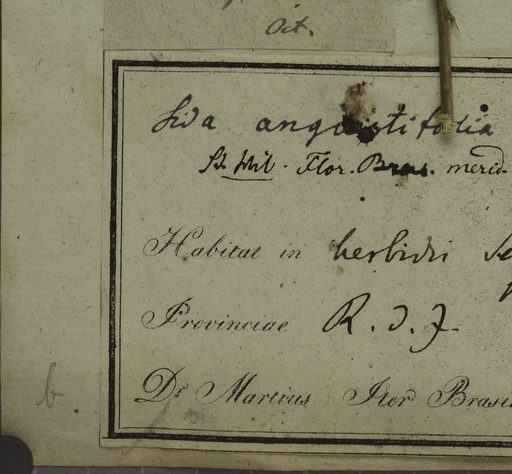 Oct.
Sida angustifolia
St. Hil. Flor. Bras. merid.
Habitat in herbidis Se
Provinciae R. d. J.
Dr. Martius Iter Brasil
b